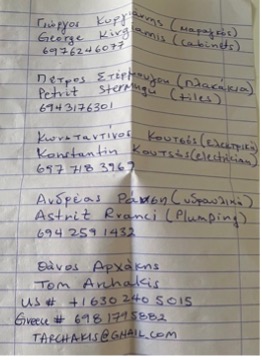 Γιώργος Κυργιάννης (μαραγκός)
George Kirgiannis (cabinets)
6976246077
Πέτρος Στέρμενγου (πλακάκια)
Petrit Stermengu (tiles)
6943176301
Κωνσταντίνος Κουτσός (ελεκτρικά)
Konstantin Κουτσός (electrician)
697 718 3969
Ανδρέας Ράνση (υδραυλικά)
Astrit Rranci (Plumping)
694 259 1432
Θάνος Αρχάκης
Tom Archakis
US # +1 630 240 5015
Greece # 698 1795882
TARCHAKIS@GMAIL.COM